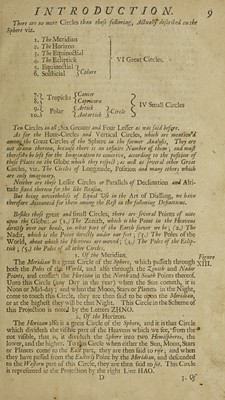 INTRODUCTION. 9
There are no more Circles than these following, Actually described on the
Sphere viz.
1. The Meridian
2. The Horizon
3. The Equinoctial
4. The Ecliptick
5. Equinoctial
6. Solsticial
Colure
VI Great Circles.
7. Tropicks
8.
Cancer
Capricorn
9. Polar
10.
Arctick
Antarctick
Circle
IV Small Circles
Ten Circles in all; Six Greater and Four Lesser as was said before.
As for the Hour-Circles and Vertical Circles, which are mention'd
among the Great Circles of the Sphere in the former Analysis, They are
not drawn thereon, because there is no infinite Number of them; and must
therefore be left for the Imagination to conceive, according to the position of
their Places in the Globe which they respect; as well as several other Great
Circles, viz. The Circles of Longitude, Position and many others which
are only imaginary.
Neither are these Lesser Circles or Parallels of Declination and Altitude
fixed thereon for the like Reason.
But being nevertheless of Equal Use in the Art of Dialling, we have
therefore accounted for them among the Rest in the following Definitions.
Besides these great and small Circles, there are several Points of note
upon the Globe: as (1.) The Zenith, which is the Point in the Heavens
directly over our heads, in what part of the Earth soever we be; (2.) The
Nadir, which is the Point directly under our feet; (3.) The Poles of the
World, about which the Heavens are moved; (4.) The Poles of the Ecliptick;
(5.) the Poles of all other Circles.
1. Of the Meridian.
The Meridian is a great Circle of the Sphere, which passeth through
both the Poles of the World, and also through the Zenith and Nadir
Points, and crosseth the Horizon in the North and South Points thereof.
Unto this Circle (any Day in the year) when the Sun cometh, it is
Noon or Mid-day; and when the Moon, Stars or Planets in the Night,
come to touch this Circle, they are then said to be upon the Meridian,
or at the highest they will be that Night. This Circle in the Scheme of
this Projection is noted by the Letters ZHNO.
Figure
XIII.
2. Of the Horizon.
The Horizon also is a great Circle of the Sphere, and it is that Circle
which divideth the visible part of the Heavens which we see, from the
not visible, that is, it divideth the Sphere into two Hemispheres, the
lower, and the higher. To this Circle when either the Sun, Moon, Stars
or Planets come to the East part, they are then said to rise; and when
they have passed from the Eastern Point by the Meridian, and descended
to the Western part of this Circle, they are then said to set. This Circle
is represented in the Projection by the right Line HAO.
D 3. Of